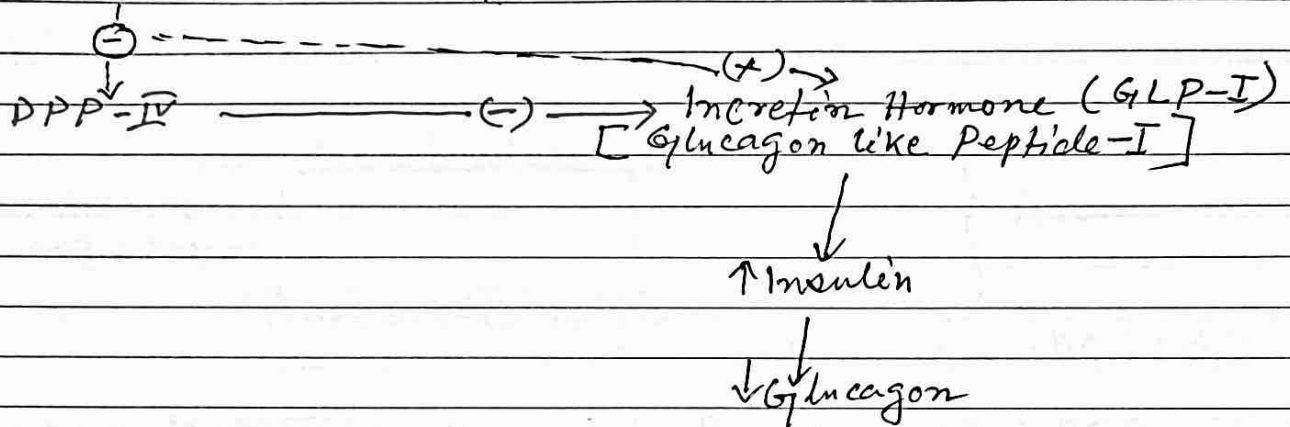 (-)
(+)
DPP-IV (-) Incretin Hormone (GLP-I)
[Glucagon like Peptide-I]
↑Insulin
↓Glucagon